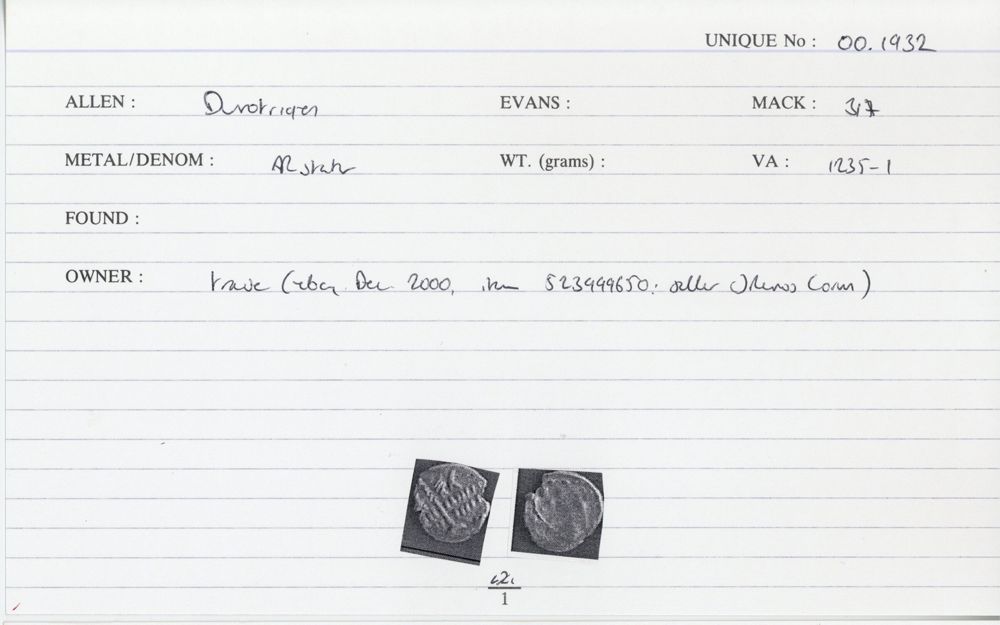 UNIQUE No : 00.1932
ALLEN : Durotriges EVANS : MACK : 317
METAL/DENOM : AR stater WT. (grams) : VA : 1235-1
FOUND :
OWNER : trade (ebay Dec 2000, item 523999650: seller
1